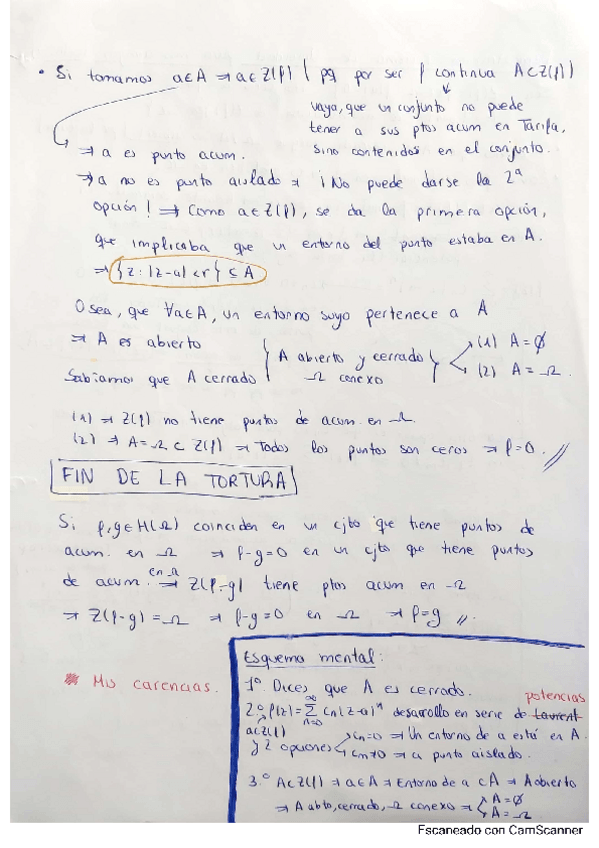 • Si tomamos a∈A ⇒ a∈Z(f) ( pq por ser f continua A⊂Z(f) )
vaya, que un conjunto no puede
tener a sus ptos acum en Tarifa,
sino contenidos en el conjunto.
⇒ a es punto acum.
⇒ a no es punto aislado ⇒ ¡No puede darse la 2ª
opción! ⇒ Como a∈Z(f), se da la primera opción,
que implicaba que un entorno del punto estaba en A.
⇒ {z : |z-a| < r} ⊆ A
Osea, que ∀a∈A, un entorno suyo pertenece a A
⇒ A es abierto
Sabíamos que A cerrado
} A abierto y cerrado
Ω conexo
} (1) A = ∅
(2) A = Ω.
(1) ⇒ Z(f) no tiene puntos de acum. en Ω.
(2) ⇒ A = Ω ⊂ Z(f) ⇒ Todos los puntos son ceros ⇒ f=0. //
FIN DE LA TORTURA
Si f,g∈H(Ω) coinciden en un cjto que tiene puntos de
acum. en Ω ⇒ f-g=0 en un cjto que tiene puntos
de acum. en Ω ⇒ Z(f-g) tiene ptos acum en Ω
⇒ Z(f-g) = Ω ⇒ f-g=0 en Ω ⇒ f=g //
Mis carencias.
Esquema mental:
1º Dices que A es cerrado.
potencias
2º f(z) = ∑ n=0 ∞ cn(z-a)ⁿ desarrollo en serie de Laurent
a∈Z(f)
y 2 opciones cn=0 ⇒ Un entorno de a está en A.
cn≠0 ⇒ a punto aislado.
3.º A⊂Z(f) ⇒ a∈A ⇒ Entorno de a ⊂ A ⇒ A abierto
⇒ A abto, cerrado, Ω conexo ⇒ { A=∅
A=Ω
Escaneado con CamScanner